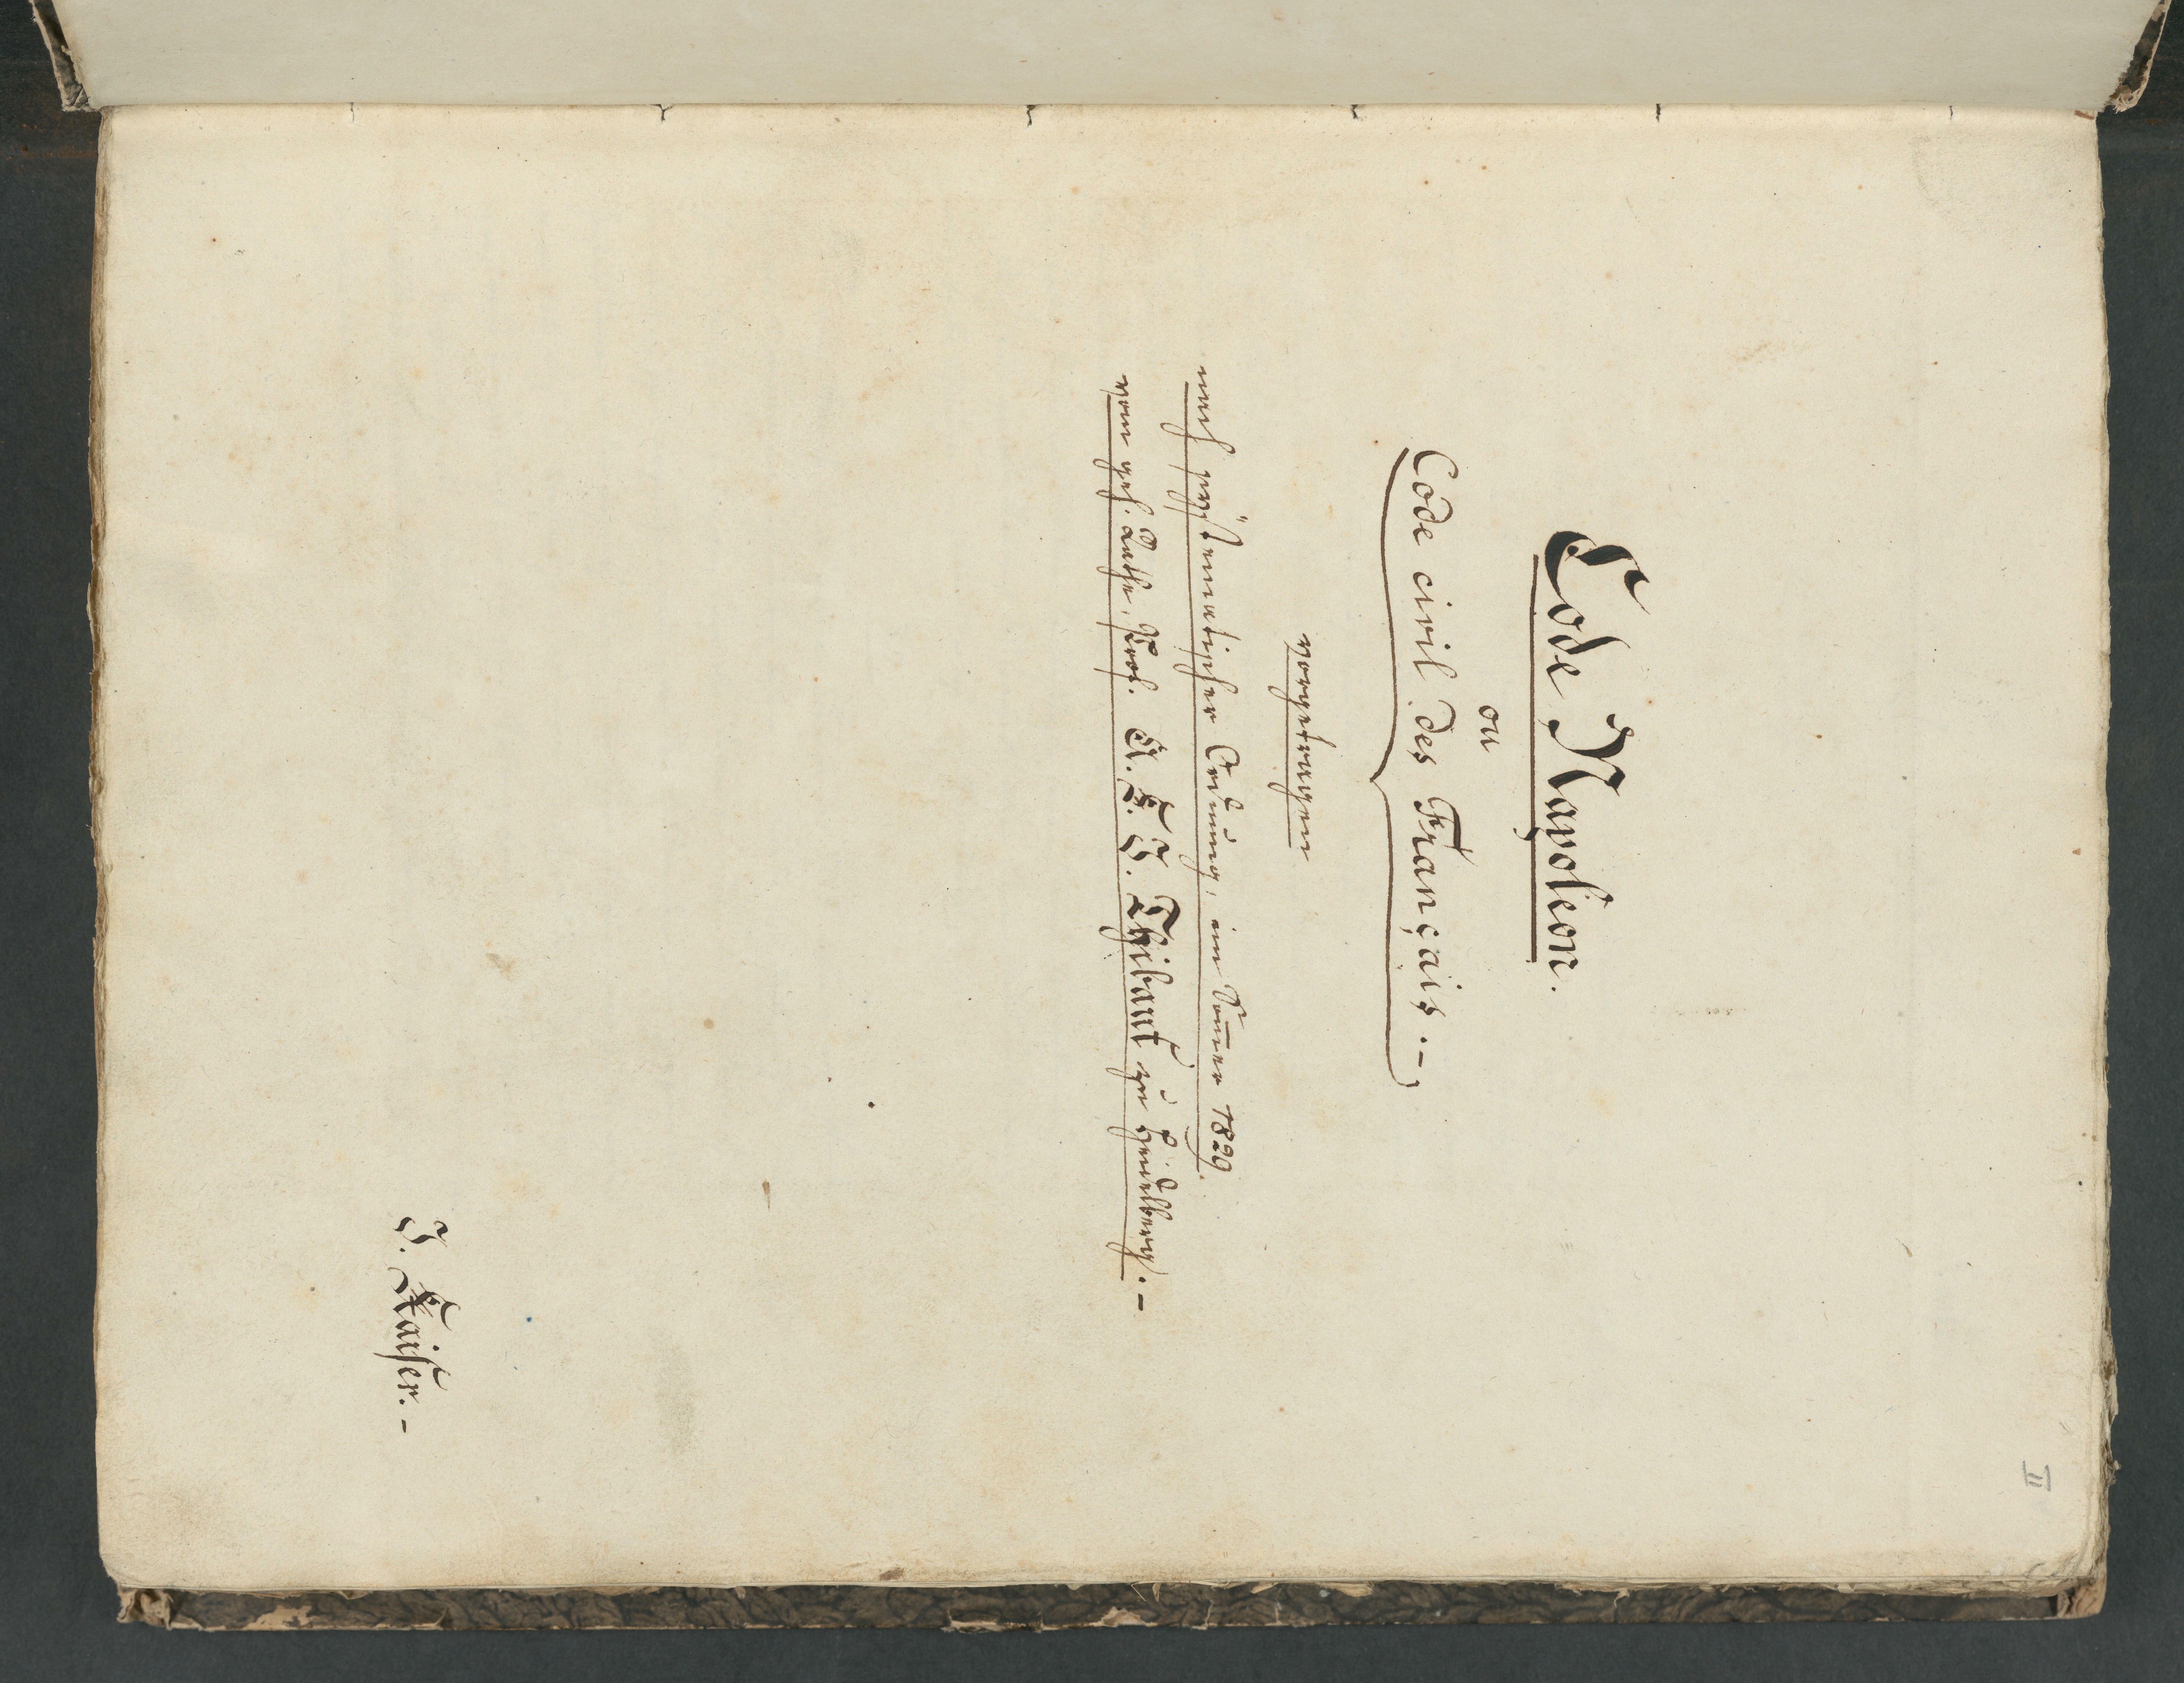 II
Code Napoléon.
ou
Code civil des Français.-
vorgetragen
nach systematischer Ordnung, im Som̄er 1829.
vom geh. Rathe, Prof. A. F. J. Thibaut zu Heidelberg.-
J. Kaiser.-